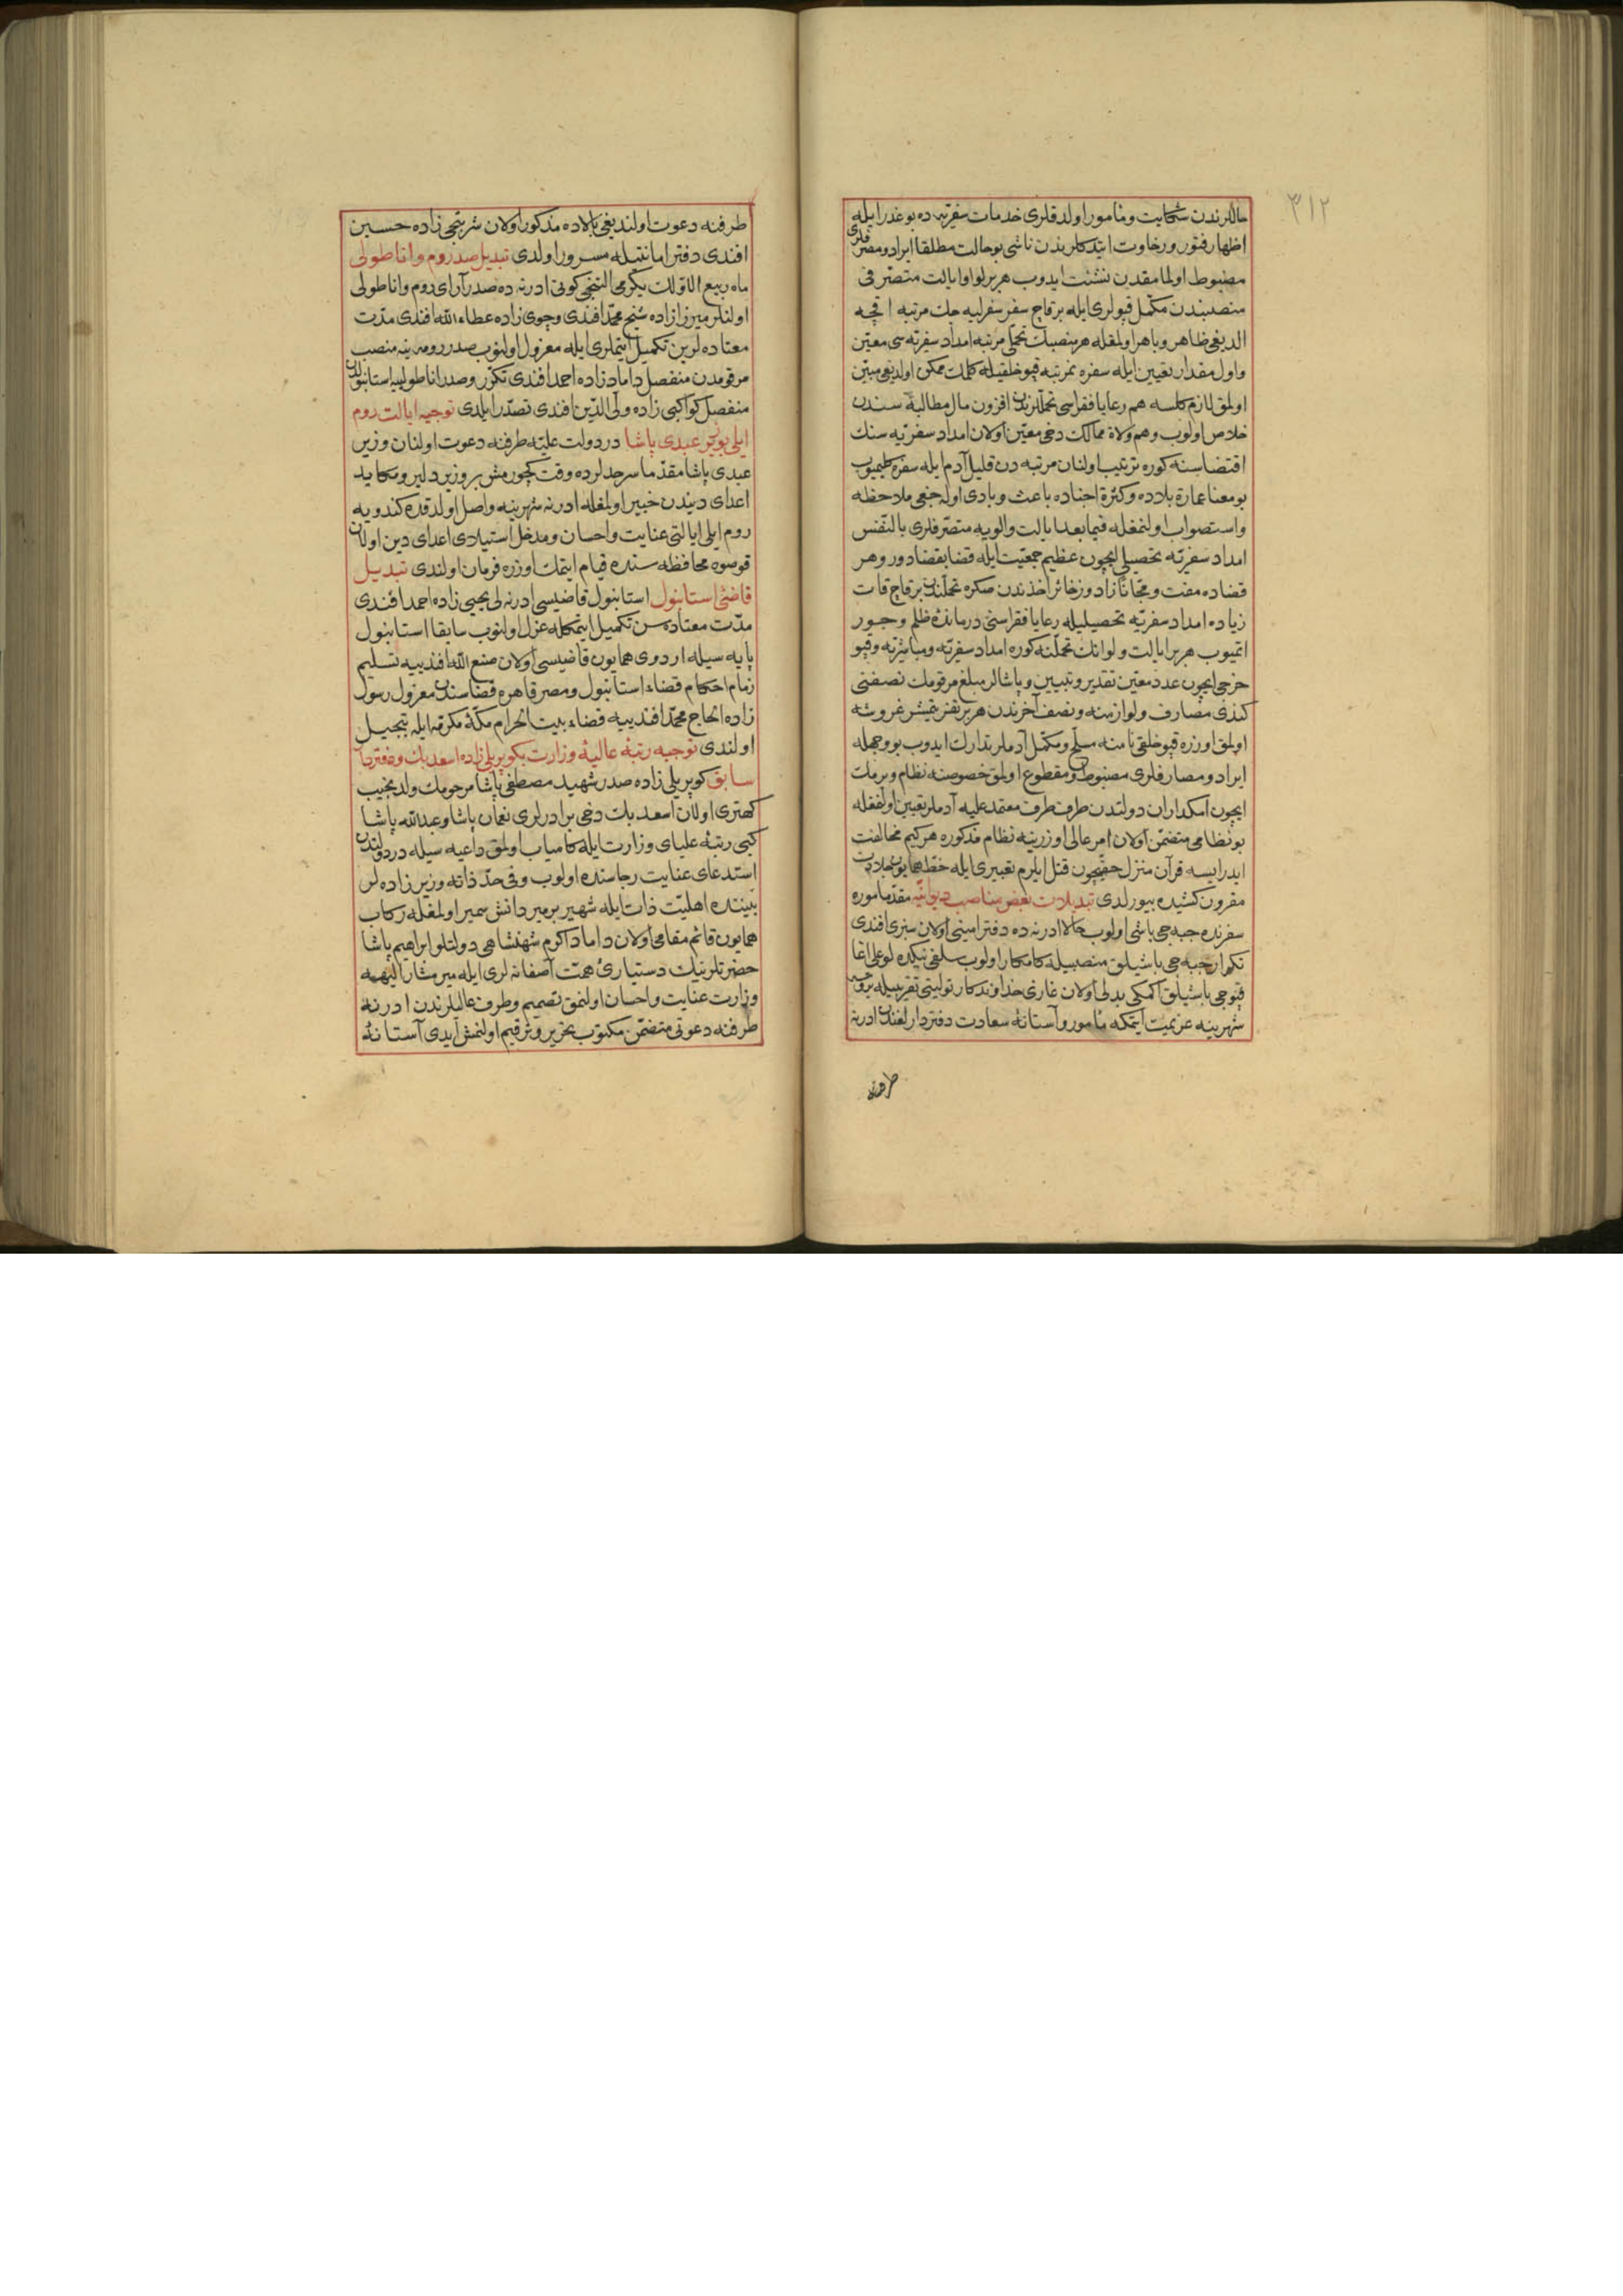 ٣١٢
حاللرندن شكايت ومأمور اولدقلرى خدمات سفريه ده بو عذر ايله
اظهار فتور ورخاوت ايتدكلريندن ناشى بو حالت مطلقا ايراد ومصرفلرى
مضبوط اولمامقدن نشئت ايدوب هر بر لوا وايالت متصرفى
منصبندن مكمل قپولرى ايله بر قاچ سفر سفرلييه جك مرتبه اقچه
الديغى ظاهر وباهر اولمغله هر منصبك تحملى مرتبه امداد سفريه سى معين
واول مقدار تعيين ايله سفره نه مرتبه قپو خلقيله كلمك ممكن اولديغى مبين
اولمق لازم كلسه هم رعايا فقراسى تحمللرندن افزون مال مطالبه سندن
خلاص اولوب وهم ولاة ممالك دخى معين اولان امداد سفريه سنك
اقتضاسنه كوره ترتيب اولنان مرتبه دن قليل آدم ايله سفره كلميوب
بو معنا عمارة بلاده وكثرة اجناده باعث وبادى اوله جغى ملاحظه
واستصواب اولنمغله فيما بعد ايالت والويه متصرفلرى بالنفس
امداد سفريه تحصيلى ايچون عظيم جمعيت ايله قضا بقضا دور وهر
قضاده مفت ومجانا زاد وزخائر اخذندن صكره تحمللرندن بر قاچ قات
زياده امداد سفريه تحصيليله رعايا فقراسنى درمانده ظلم وجور
اتميوب هر بر ايالت ولوانك تحملنه كوره امداد سفريه ومباشريه وقپو
خرجى ايچون عدد معين تقدير وتبيين وپاشالر مبلغ مرقومك نصفنى
كندى مصارف ولوازمنه ونصف آخرندن هر بر نفر يتمشر غروشه
اولمق اوزره قپو خلقى نامنه مسلح ومكمل آدملر تدارك ايدوب بو وجهله
ايراد ومصارفلرى مضبوط ومقطوع اولمق خصوصنه نظام ويرمك
ايچون امكداران دولتدن طرف طرف معتمد عليه آدملر تعيين اولنمغله
بو نظامى متضمن اولان امر عالى اوزرينه نظام مذكوره هر كيم مخالفت
ايدر ايسه قرآن منزل حقيچون قتل ايلرم تعبيرى ايله خط همايون جلادت
مقرون كشيده بيورلدى تبديلات بعض مناصب ديوانيه مقدما موره
سفرنده جبه جى باشى اولوب حالا ادرنه ده دفتر امينى اولان سبزى افندى
تكرار جبه جى باشيلق منصبيله كامكار اولوب سلفى نيكده لو على اغا
قپوجى باشيلق اكمكى بدلى اولان غازى خداوندكار توليتى تقريبيله بروسه
شهرينه عزيمت ايتمكه مأمور وآستانه سعادت دفتردارلغندن ادرنه
طرفنه
طرفنه دعوت اولنديغى بالاده مذكور اولان شربتجى زاده حسين
افندى دفتر امانتيله مسرور اولدى تبديل صدر روم واناطولى
ماه ربيع الاولك يكرمى التنجى كونى ادرنه ده صدرآراى روم واناطولى
اولنلر ميرزا زاده شيخ محمد افندى وچوى زاده عطاء الله افندى مدت
معتاده لرين تكميل ايتملرى ايله معزول اولنوب صدر رومه ينه منصب
مرقومدن منفصل داماد زاده احمد افندى تكرر وصدر اناطولييه استانبولدن
منفصل كواكبى زاده ولى الدين افندى تصدر ايلدى توجيه ايالت روم
ايلى بوزير عبدى پاشا در دولت عليه طرفنه دعوت اولنان وزير
عبدى پاشا مقدما سرحدلرده وقت كچورمش بر وزير دلير ومكايد
اعداى ديندن خبير اولمغله ادرنه شهرينه واصل اولدقده كندويه
روم ايلى ايالتى عنايت واحسان ومدخل استيلاى اعداى دين اولان
قوصوه محافظه سنده قيام ايتمك اوزره فرمان اولندى تبديل
قاضئ استانبول استانبول قاضيسى ادرنه لى يحيى زاده احمد افندى
مدت معتاده سن تكميل ايتمكله عزل اولنوب سابقا استانبول
پايه سيله اردوى همايون قاضيسى اولان صنع الله افندييه تسليم
زمام احكام قضاء استانبول ومصر قاهره قضاسندن معزول رسول
زاده الحاج محمد افندييه قضاء بيت الحرام مكة مكرمه ايله تبجيل
اولندى توجيه رتبۀ عاليۀ وزارت بكوپريلى زاده اسعد بك ودفتردار
سابق كوپريلى زاده صدر شهيد مصطفى پاشا مرحومك ولد نجيب
كهترى اولان اسعد بك دخى برادرلرى نعمان پاشا وعبد الله پاشا
كبى رتبۀ علياى وزارت ايله كامياب اولمق داعيه سيله در دولتدن
استدعاى عنايت رجاسنده اولوب وفى حد ذاته وزير زاده لر
بيننده اهليت ذات ايله شهير بر مير دانش سمير اولمغله ركاب
همايون قائم مقامى اولان داماد اكرم شهنشاهى دولتلو ابراهيم پاشا
حضرتلرينك دستيارئ همت آصفانه لرى ايله مير مشار اليهه
وزارت عنايت واحسان اولنمق تصميم وطرف عاليلرندن ادرنه
طرفنه دعوتى متضمن مكتوب تحرير وترقيم اولنمش ايدى آستانۀ